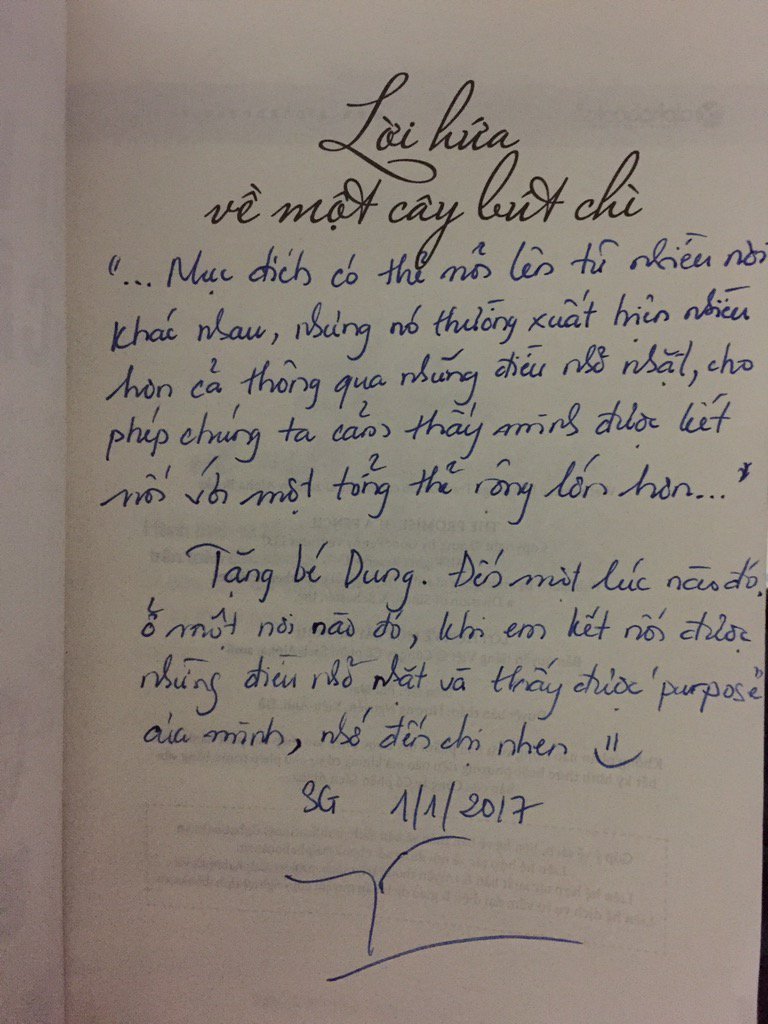 Lời hứa
về một cây bút chì
"... Mục đích có thể nổi lên từ nhiều nơi
khác nhau, nhưng nó thường xuất hiện nhiều
hơn cả thông qua những điều nhỏ nhặt, cho
phép chúng ta cảm thấy mình được kết
nối với một tổng thể rộng lớn hơn..."
Tặng bé Dung. Đến một lúc nào đó,
ở một nơi nào đó, khi em kết nối được
những điều nhỏ nhặt và thấy được "purpose"
của mình, nhớ đến chị nhen =)
SG 1/1/2017